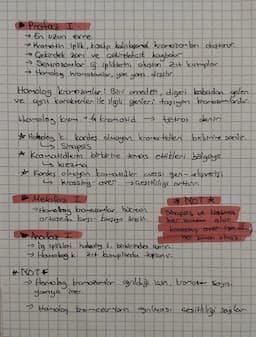 Profaz I
→ En uzun evre
→ Kromatin iplik, kısalıp kalınlaşarak kromozomları oluşturur.
→ Çekirdek zarı ve çekirdekçik kaybolur.
→ Sentrozomlar iğ ipliklerini oluşturur zıt kutuplar
→ Homolog kromozomlar, yan yana dizilir
Homolog kromozomlar: Biri anneden, diğeri babadan gelen
ve aynı karakterler ile ilgili genleri taşıyan kromozomlardır.
Homolog krom → 4 kromatid → tetrat denir
★ Homolog k. kardeş olmayan kromatitleri birbirine sarılır.
↳ Sinapsis
★ Kromatidlerin birbirine temas ettikleri bölgeye
↳ kiazma
★ Kardeş olmayan kromatidler arası gen
↳ krossing-over → çeşitliliği arttırır
Metafaz I
→ Homolog kromozomlar hücrenin
ortasında karşı karşıya dizilir
★ NOT ★
Sinapsis ve kiazma
her zaman olur
krossing over
her zaman olmaz
Anafaz I
→ İğ iplikleri
→ Homolog k. zıt kutuplarda toplanır.
★ NOT ★
→ Homolog kromozomlar ayrıldığı için, kromozom sayısı
yarıya iner
→ Homolog kromozomların ayrılması çeşitliliği sağlar